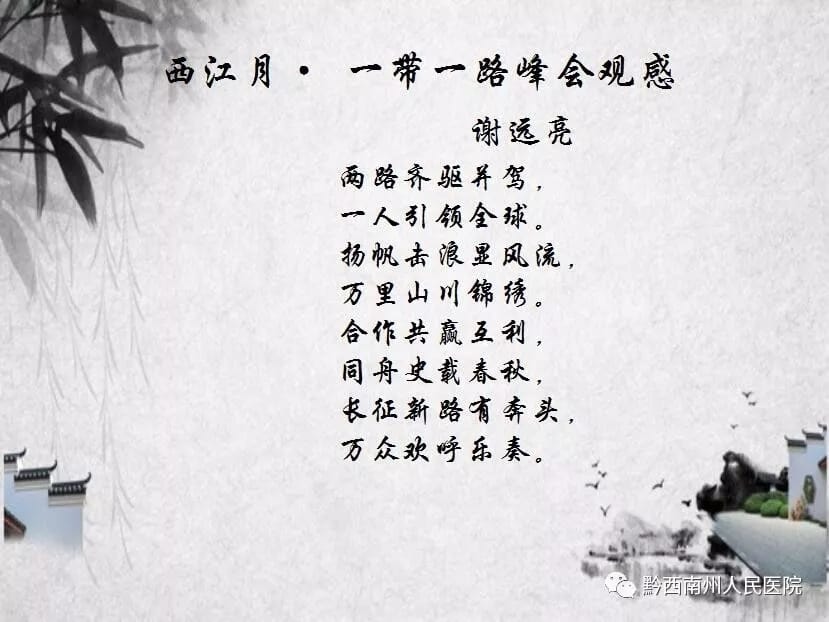 西江月· 一带一路峰会观感
谢远亮
两路齐驱并驾，
一人引领全球。
扬帆击浪显风流，
万里山川锦绣。
合作共赢互利，
同舟史载春秋，
长征新路有奔头，
万众欢呼乐奏。
黔西南州人民医院